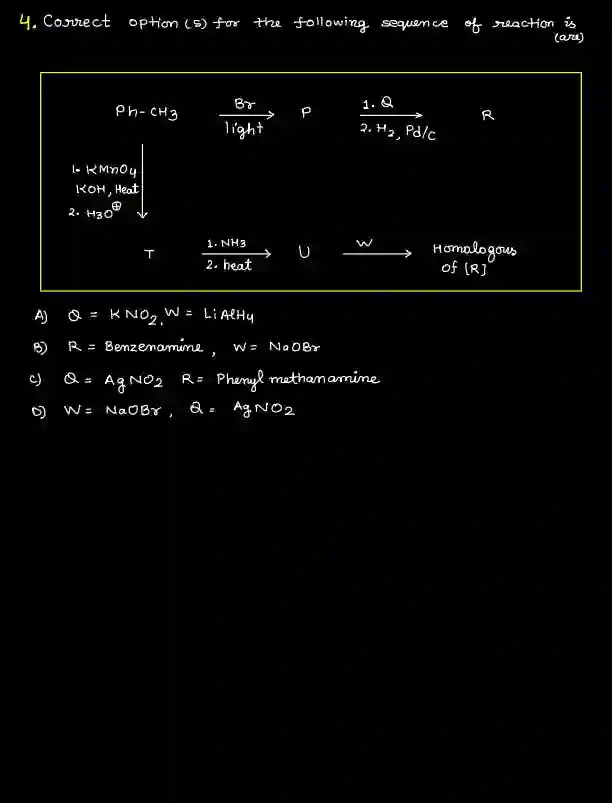 4. Correct option (s) for the following sequence of reaction is
(are)
Ph-CH3 Br light P 1. Q 2. H2, Pd/c R
1. KMnO4
KOH, Heat
2. H3O⊕
T 1. NH3 2. heat U W Homologous
of [R]
A) Q = KNO2, W = LiAlH4
B) R = Benzenamine, W = NaOBr
c) Q = AgNO2 R = Phenyl methanamine
D) W = NaOBr, Q = AgNO2